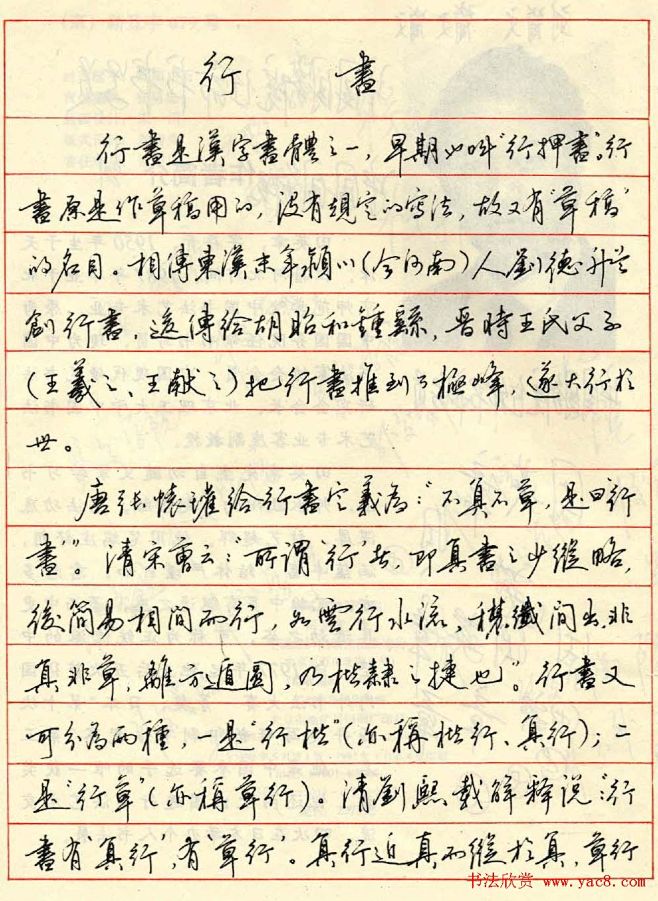 行書
行書是漢字書體之一，早期叫"行押書"。行
書原是作草稿用的，没有規定的寫法，故又有"草稿"
的名目。相傳東漢末年潁川(今河南)人劉德升首
創行書，後傳給胡昭和鍾繇，晋時王氏父子
(王羲之、王献之)把行書推到了極峰，遂大行於
世。
唐張懷瓘給行書定義為："不真不草，是曰行
書"。清宋曹云："所謂行者，即真書之少縱略，
後簡易相間而行，如雲行水流，穠纖間出，非
真非草，離方遁圓，乃楷隸之捷也"。行書又
可分為兩種，一是"行楷"(亦稱楷行、真行)；二
是"行草"(亦稱草行)。清劉熙載解释说："行
書有'真行'，有'草行'。真行近真而縱於真，草行
书法欣赏 www.yac8.com